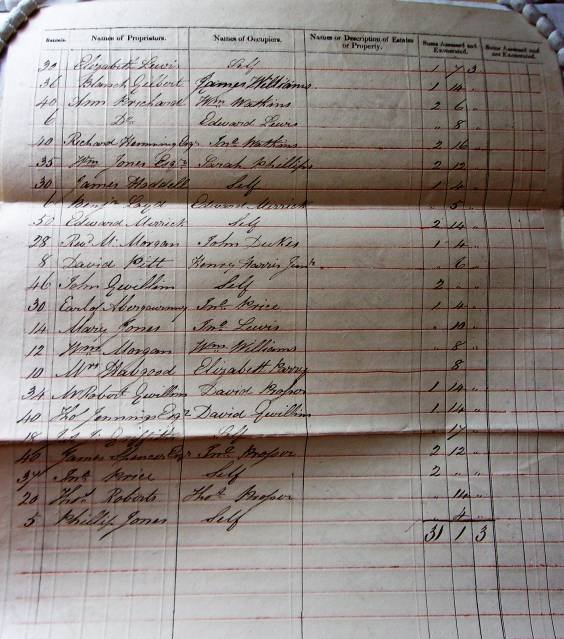 Names of Proprietors. Names of Occupiers. Names or Description of Estates or Property. Sums Assessed and Exonerated. Sums Assessed and not Exonerated.
20 Elizabeth Lewis Self 1 7 3
36 Blanch Gilbert James Williams 1 14 "
40 Ann Prichard Wm Watkins 2 6 "
6 Do Edward Lewis " 8 "
40 Richard Hemming Esqr Jno Watkins 2 16 "
35 Wm Jones Esqr Sarah Phillips 2 12
30 James Hodwell Self 1 4 "
6 Benjn Loyd Edward Merrick " 5 "
50 Edward Merrick Self 2 14 "
28 Revd M. Morgan John Dukes 1 4 "
8 David Pitt Henry Harris Junr " 6 "
46 John Gwillim Self 2 " "
30 Earl of Abergavenny Jno Price 1 4 "
14 Mary Jones Jno Lewis " 10 "
12 Wm Morgan Wm Williams " 8 "
10 Mrs Habgood Elizabeth Parry 8
34 Mr Robert Gwillim David Prosser 1 14 "
40 Thos Jennings Esqr David Gwillim 1 14 "
18 Self " 17 "
46 James Spencer Esqr Jno Prosser 2 12 "
34 Jno Price Self 2 " "
20 Thos Roberts Thos Prosser "
5 Phillip Jones Self " 4 "
31 1 3